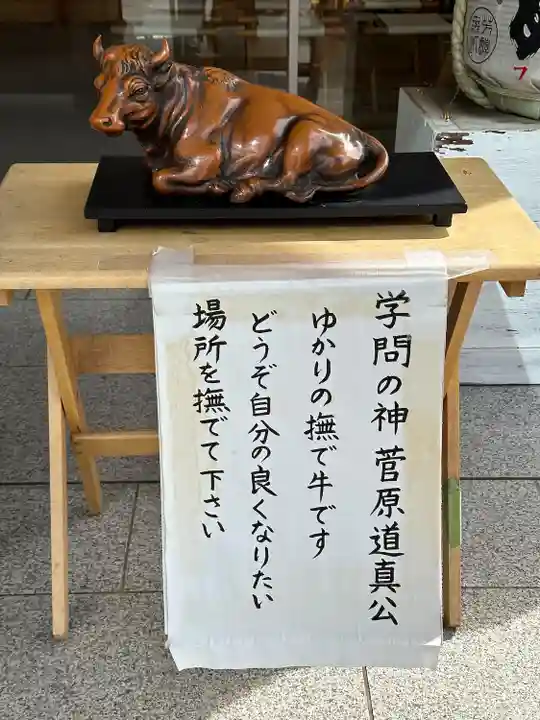 学問の神 菅原道真公
ゆかりの撫で牛です
どうぞ自分の良くなりたい
場所を撫でて下さい